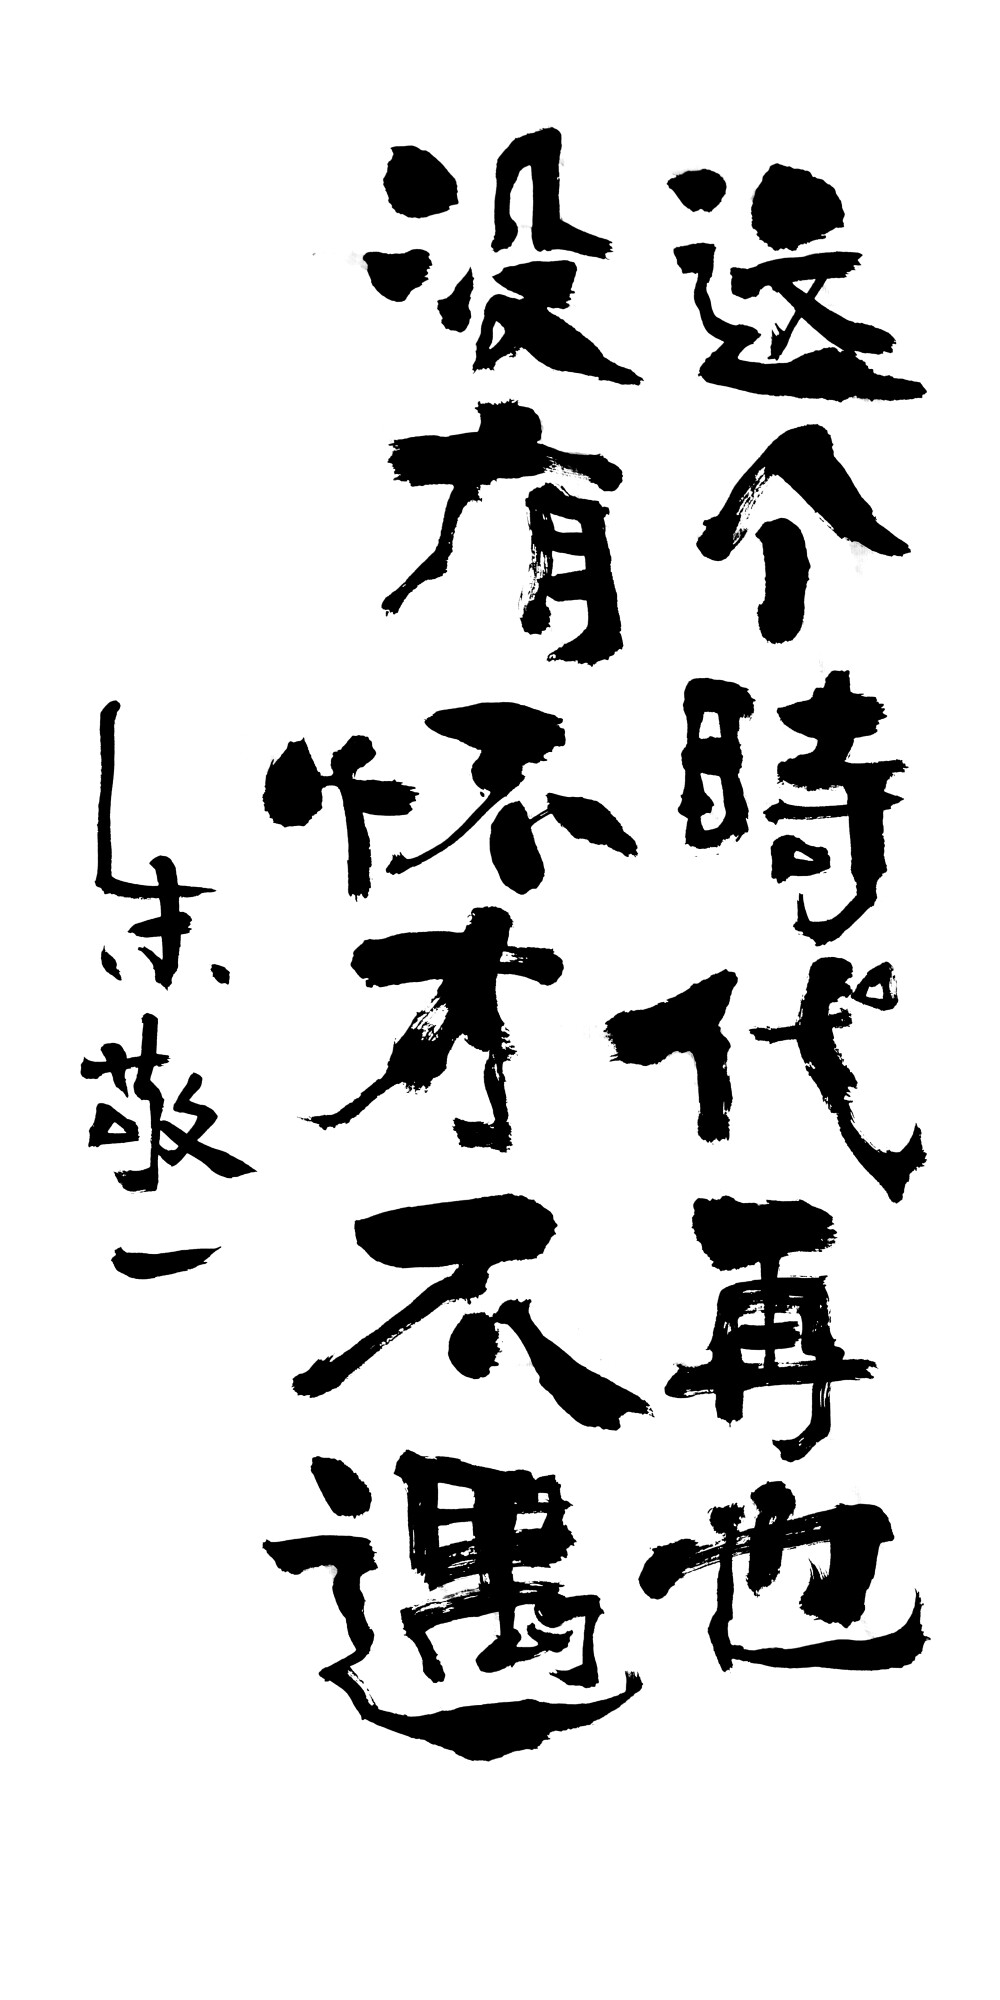 这个時代再也
没有怀才不遇
朱敬一